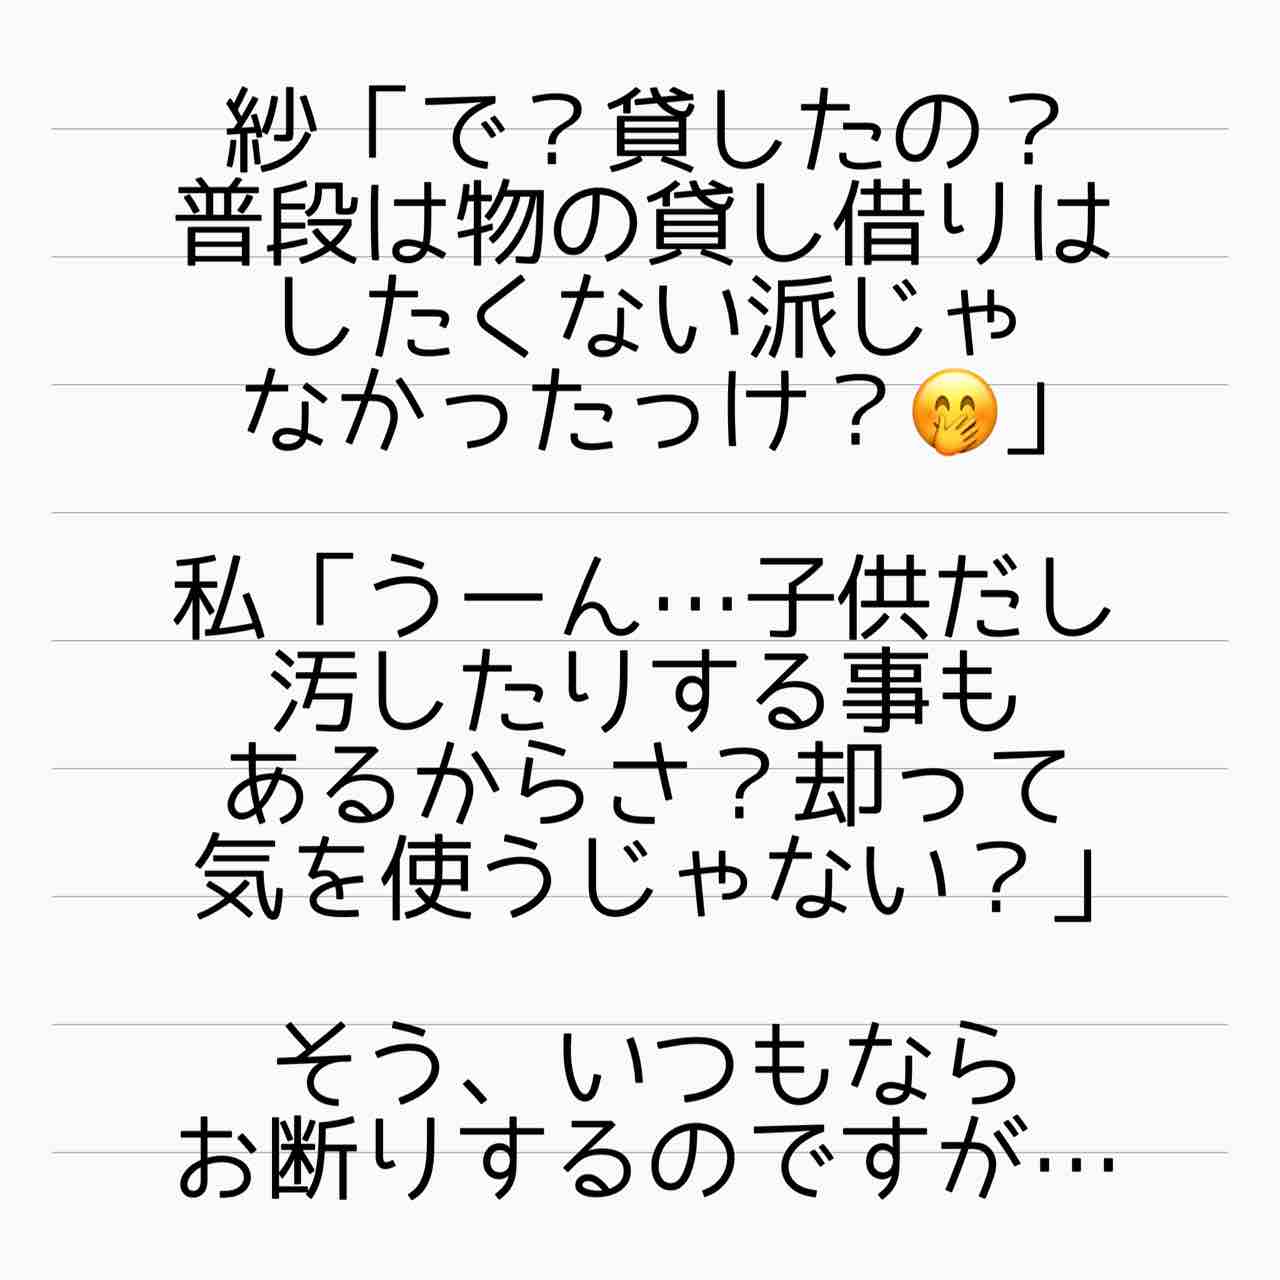 紗「で？貸したの？
普段は物の貸し借りは
したくない派じゃ
なかったっけ？🤭」
私「うーん…子供だし
汚したりする事も
あるからさ？却って
気を使うじゃない？」
そう、いつもなら
お断りするのですが…